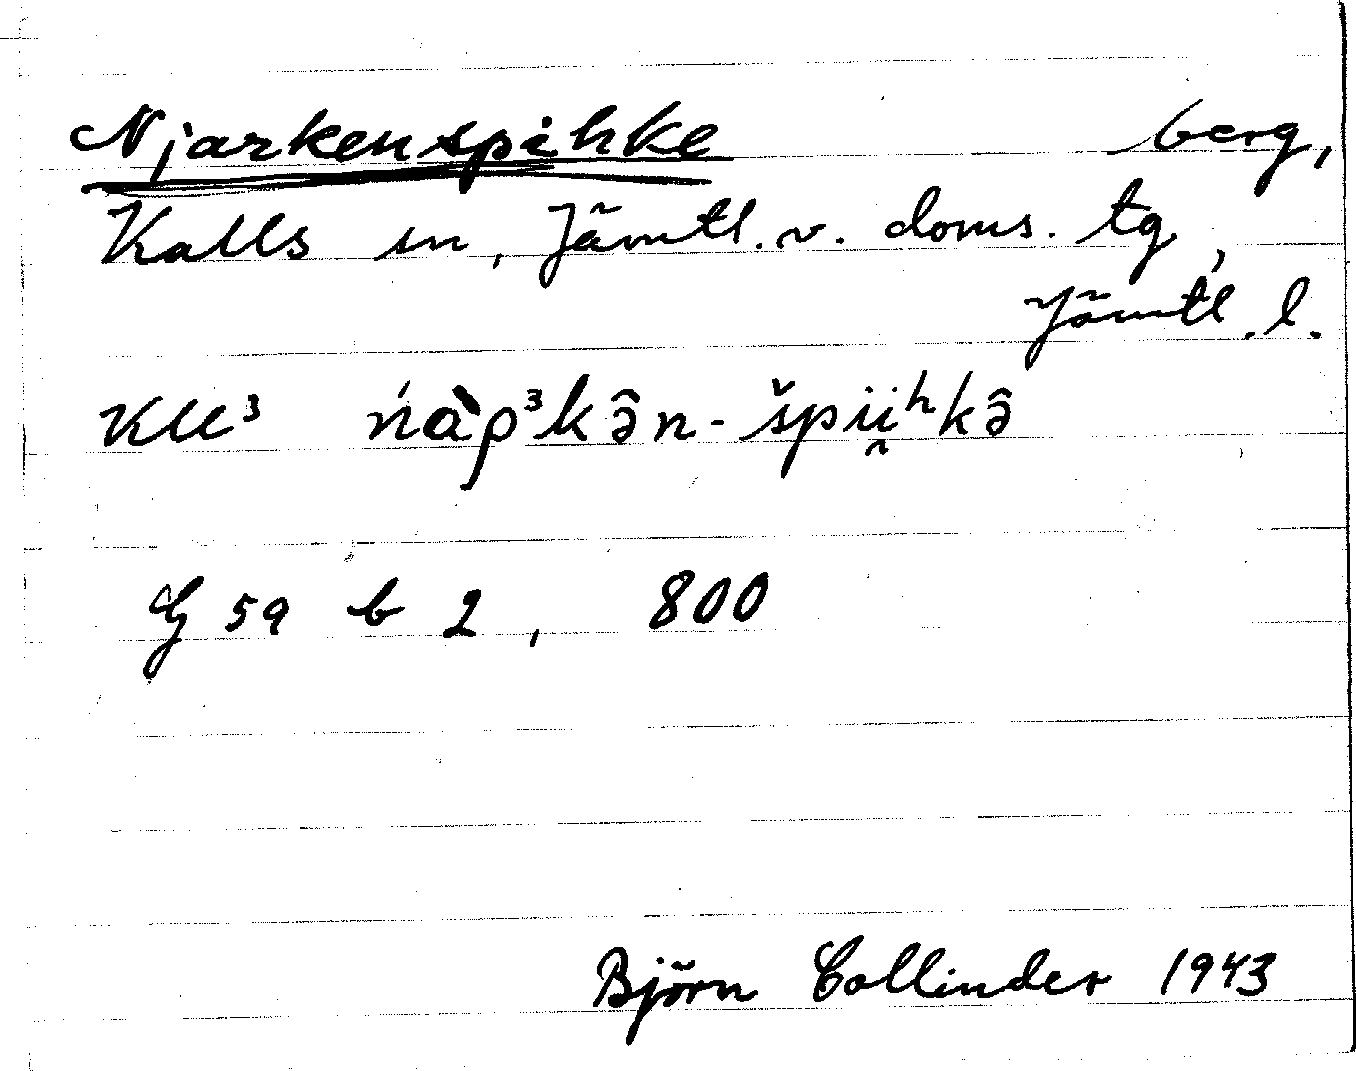 Njarkenspihke berg,
Kalls sn, Jämtl. v. doms. tg,
Jämtl. l.
KU³ ńàρ³kə̂n-špii̯ʰkə̂
G 59 b 2, 800
Björn Collinder 1943